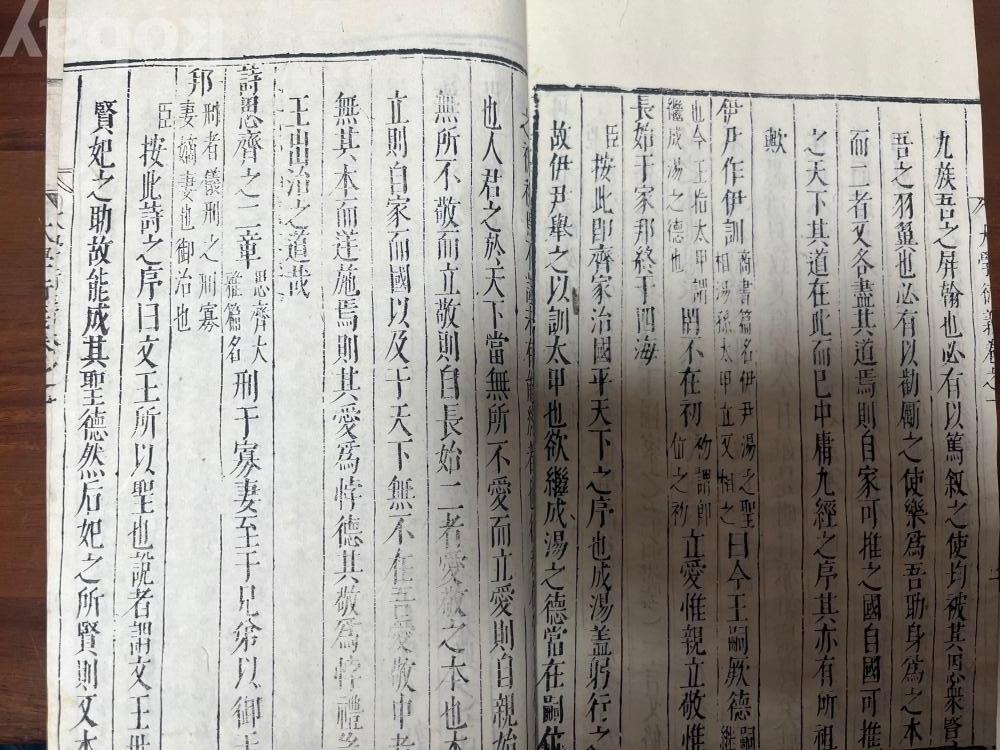 九族吾之屏翰也必有以篤敘之使均被其恩衆賢
吾之羽翼也必有以勸勵之使樂為吾助身為之本
而二者又各盡其道焉則自家可推之國自國可推
之天下其道在此而已中庸九經之序其亦有所祖
歟
伊尹作伊訓 商書篇名伊尹湯之聖相湯孫太甲立又相之 曰今王嗣厥德
也今王指太甲嗣繼成湯之德也 罔不在初 初謂即位之初 立愛惟親立敬惟
長始于家邦終于四海
臣按此即齊家治國平天下之序也成湯盖躬行之
故伊尹舉之以訓太甲也欲繼成湯之德當在嗣位
也人君之於天下當無所不愛而立愛則自親始
無所不敬而立敬則自長始二者愛敬之本也本
立則自家而國以及于天下無不在吾愛敬中者
無其本而遽施焉則其愛為悖德其敬為悖禮
王由治之道哉
詩思齊之二章 思齊大雅篇名 刑于寡妻至于兄弟以御于
邦 刑者儀刑之刑寡妻嫡妻也御治也
臣按此詩之序曰文王所以聖也說者謂文王
賢妃之助故能成其聖德然后妃之所賢則文本
kobay